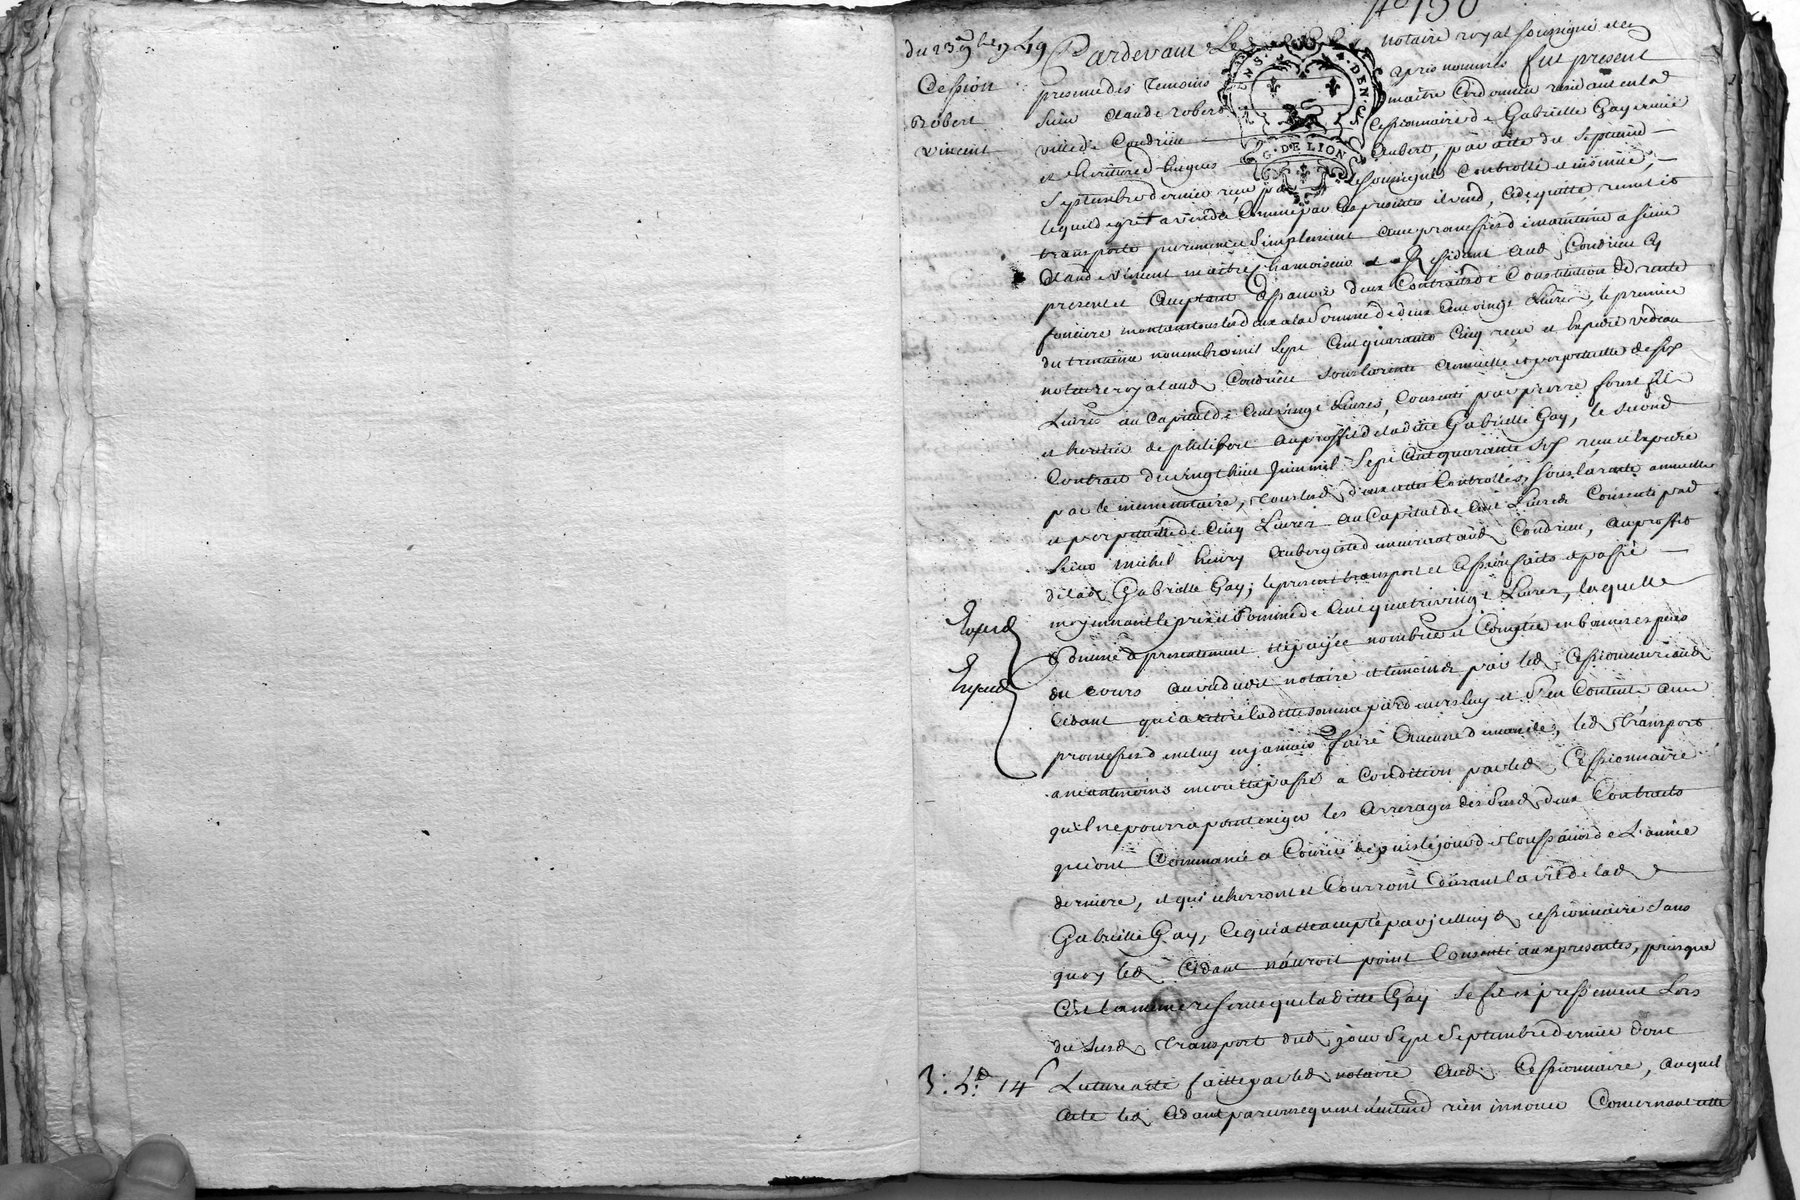 No 130
du 23 9bre 1749
Cession
Robert
Vincent
Pardevant Le notaire royal soussigné et en
presence des Temoins apres nommes fut present
sieur Claude Robert maitre Cordonnier residant en lad
ville de Condrieu Cessionnaire de Gabrielle Gay
et heritiere d'hugues Aubert, par acte du septieme
Septembre dernier, reçu par Le soussigné Controllé et insinué,
lequel de gré a vendu Comme par Ces presentes il vend, Cede, quitte, remet et
transporte purement et Simplement avec promesse de maintenir a sieur
Claude Vincent maitre chamoiseur Residant aud Condrieu Cy
present et acceptant Assavoir deux Contrats de Constitution de rente
fonciere montant tous les deux a la Somme de deux Cent vingt Livres, le premier
du trentieme novembre mil Sept Cent quarante Cinq reçu et Expedié
notaire royal aud Condrieu sous la rente annuelle et perpetuelle de six
Livres au Capital de Cent vingt Livres, Consenti par pierre forest fils
et heritier de philibert au proffit de ladite Gabrielle Gay, le second
Contrat du vingt huit Juin mil Sept Cent quarante Six reçu et Expedié
par le meme notaire, tous les deux actes Controllés, sous la rente annuelle
et perpetuelle de Cinq Livres au Capital de Cent Livres Consenti par
Sieur michel henry aubergiste demeurant aud Condrieu, au proffit
de lad Gabrielle Gay; le present transport et Cession faits et passé
moyennant le prix et Somme de Cent quatrevingt Livres, laquelle
Somme a presentement été payée nombrée et Comptée en bonnes especes
du cours au vû dudit notaire et temoins par led Cessionnaire aud
Cedant qui a retiré laditte somme pardevers luy et s'en Contente avec
promesse de ne luy en jamais faire aucune demande, led Transport
a neantmoins encore été passé a Condition par led Cessionnaire
qu'il ne pourra point exiger les Arrerages des Susd deux Contrats
qui ont Commancé a Courir depuis le jour de Toussaint de L'année
derniere, et qui echerront et Courront durant la vie de lad
Gabrielle Gay, Ce qui a été accepté par jcelluy Cessionnaire Sans
quoy led Cedant n'auroit point Consenti aux presentes, puisque
C'est la meme reserve que laditte Gay se fit expressement Lors
du susd Transport dud jour Sept Septembre dernier dont
Lecture a été faitte par led notaire aud Cessionnaire, auquel
acte led Cedant par consequent n'entend rien innover Concernant cette